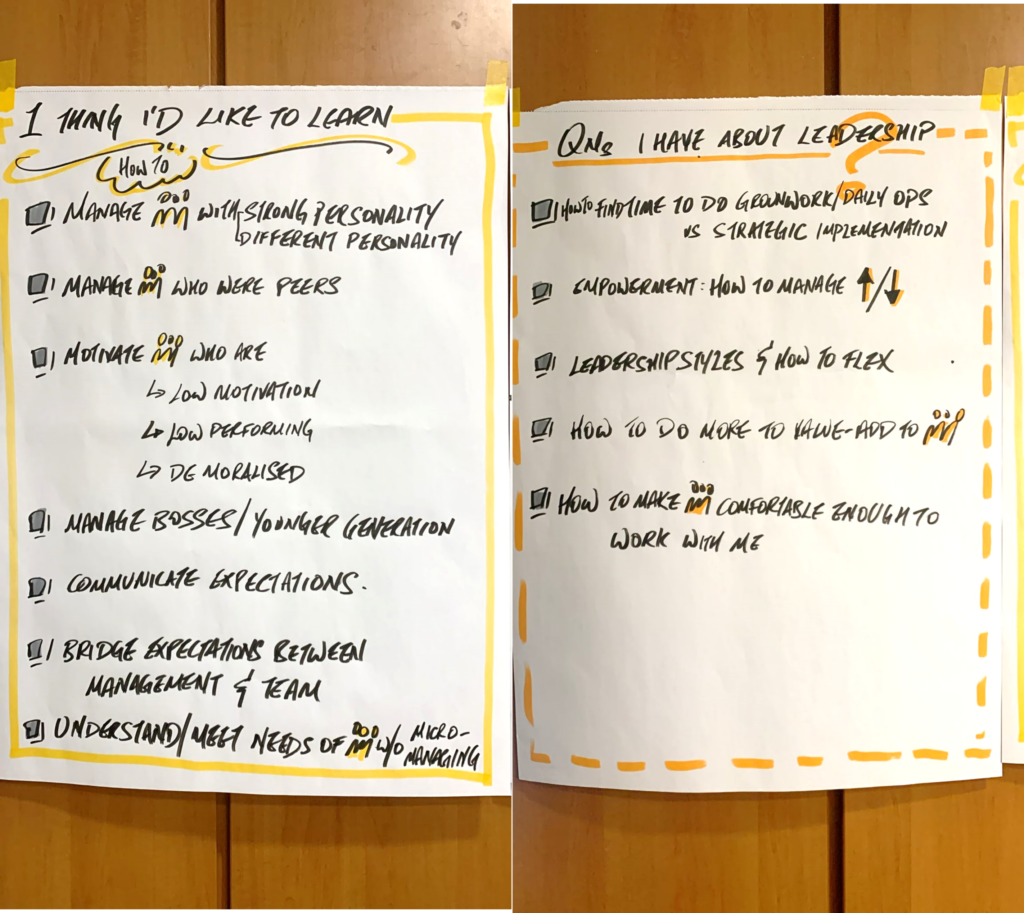 1 THING I'D LIKE TO LEARN
HOW TO
MANAGE WITH STRONG PERSONALITY
DIFFERENT PERSONALITY
MANAGE WHO WERE PEERS
MOTIVATE WHO ARE
↳ LOW MOTIVATION
↳ LOW PERFORMING
↳ DEMORALISED
MANAGE BOSSES/YOUNGER GENERATION
COMMUNICATE EXPECTATIONS.
BRIDGE EXPECTATIONS BETWEEN
MANAGEMENT & TEAM
UNDERSTAND/MEET NEEDS OF W/O MICRO-
MANAGING
QNS I HAVE ABOUT LEADERSHIP ?
HOW TO FIND TIME TO DO GROUNWORK/DAILY OPS
VS STRATEGIC IMPLEMENTATION
EMPOWERMENT: HOW TO MANAGE ↑/↓
LEADERSHIP STYLES & HOW TO FLEX
HOW TO DO MORE TO VALUE-ADD TO
HOW TO MAKE COMFORTABLE ENOUGH TO
WORK WITH ME